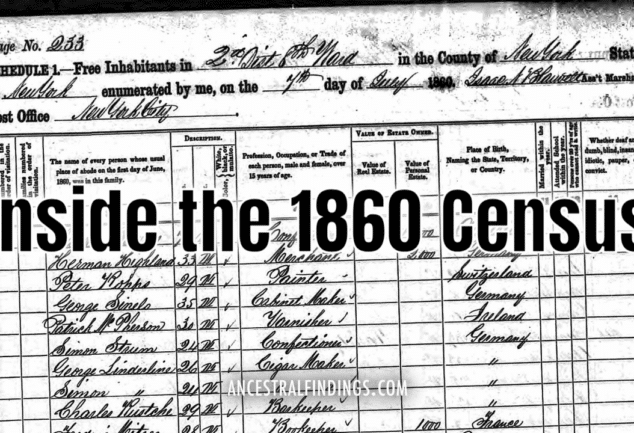 Page No. 233
SCHEDULE 1.—Free Inhabitants in 2d Dist 8th Ward in the County of New York State
New York enumerated by me, on the 7th day of July 1860. Ass't Marshal
Post Office New York City
DESCRIPTION.
VALUE OF ESTATE OWNED.
The name of every person whose usual place of abode on the first day of June, 1860, was in this family.
Profession, Occupation, or Trade of each person, male and female, over 15 years of age.
Value of Real Estate.
Value of Personal Estate.
Place of Birth, Naming the State, Territory, or Country.
Married within the
Whether deaf an
dumb, blind, insan
Inside the 1860 Census
Herman Highland 33 M Merchant 2,000 Germany
Peter Kopps 29 M Painter Switzerland
George Sinels 35 M Cabinet Maker Germany
Patrick McPherson 30 M Varnisher Ireland
Simon Strum 24 M Confectioner Germany
George Linderline 26 M Cigar Maker "
Simon " 24 M "
ANCESTRALFINDINGS.COM
Charles 29 M Barkeeper "
28 M Bookeeper 1000 France